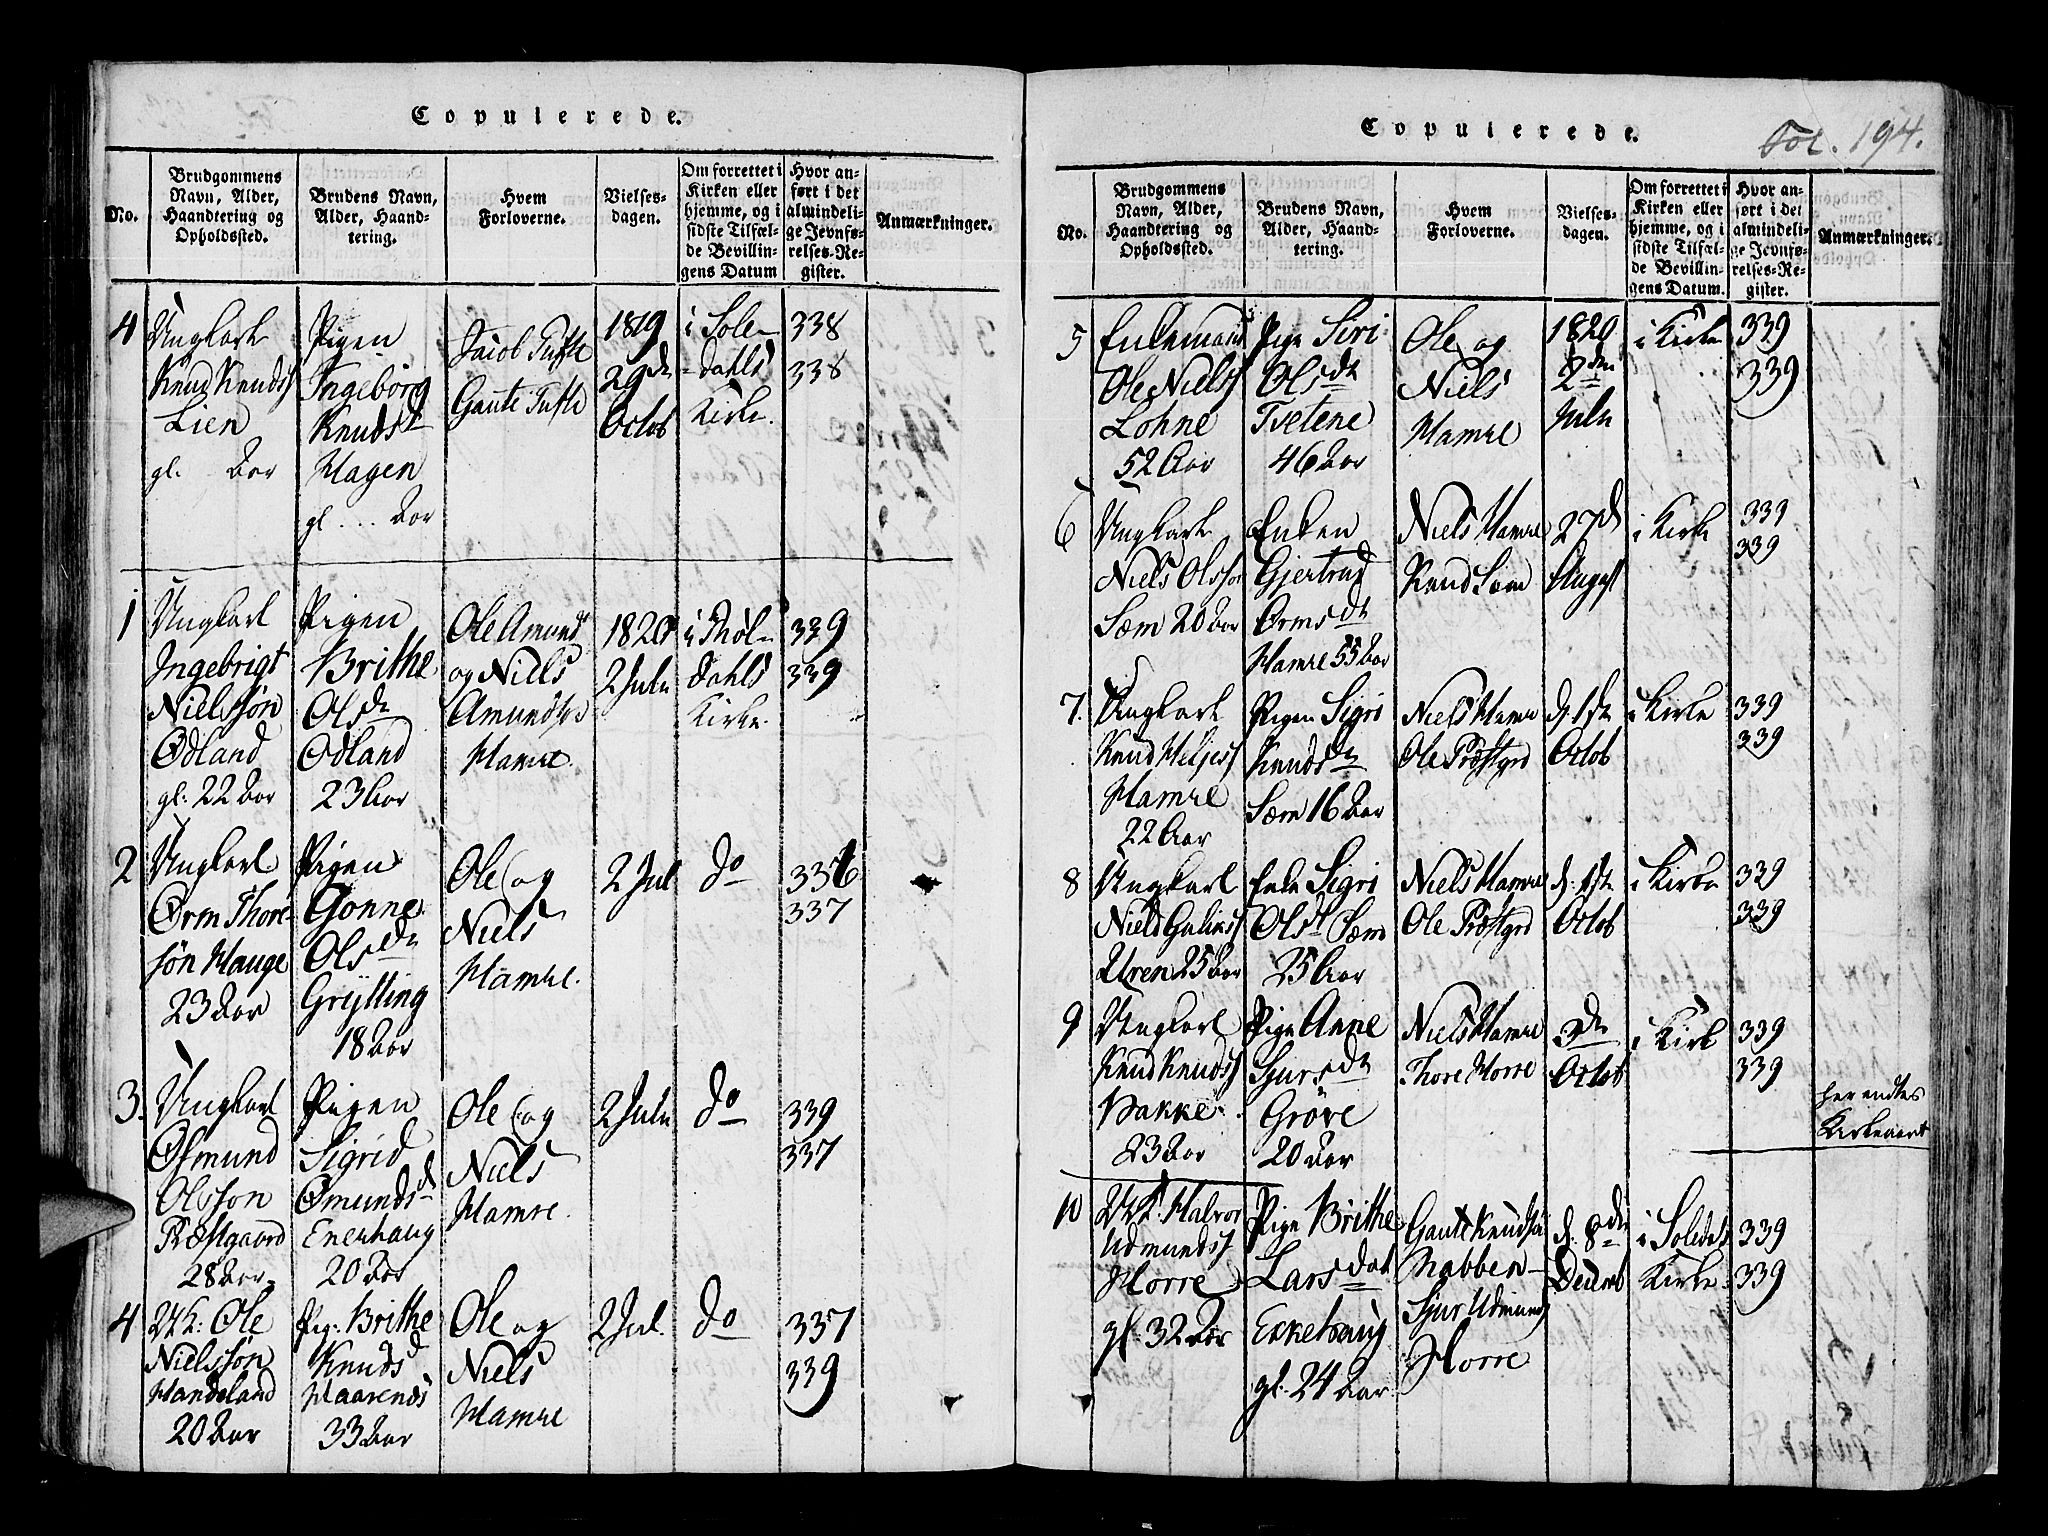 Copulerede.
No.
Brudgommens
Navn, Alder,
Haandtering og
Opholdssted.
Brudens Navn,
Alder, Haand-
tering.
Hvem
Forloverne.
Vielses-
dagen.
Om forrettet i
Kirken eller
hjemme, og i
sidste Tilfæl-
de Bevillin-
gens Datum
Hvor an-
ført i det
almindeli-
ge Jevnfø-
relses-Re-
gister.
Anmærkninger.
4
Ungkarl
Knud Knuds
Lien
gl. Aar
Pigen
Ingebørg
Knudsd
Hagen
gl ... Aar
Jacob Tufte
Gaute Tufte
1819
29de
Octob
i Sole-
dahls
Kirke.
338
338
1
Ungkarl
Ingebrigt
Nielssøn
Ødland
gl: 22 Aar
Pigen
Brithe
Olsdr
Odland
23 Aar
Ole Amunds
og Niels
Amundss
Hamre.
1820
2 Juln
i Røl-
dahls
Kirke.
339
339
2
Ungkarl
Ørm Thore-
søn Hauge
23 Aar
Pigen
Gonne
Olsdr
Grytting
18 Aar
Ole og
Niels
Hamre.
2 Jul
do
336
337
3.
Ungkarl
Osmund
Olsson
Præstgaard
28 Aar
Pigen
Sigrid
Ømundsd
Enerhaug
20 Aar
Ole og
Niels
Hamre.
2 Juln
do
339
337
4
UK: Ole
Nielssøn
Handeland
20 Aar
Pig: Brithe
Knudsd
Haarenæs
33 Aar
Ole og
Niels
Hamre
2 Jul.
do
337
339
Copulerede.
Fol. 194.
No.
Brudgommens
Navn, Alder,
Haandtering og
Opholdssted.
Brudens Navn,
Alder, Haand-
tering.
Hvem
Forloverne.
Vielses-
dagen.
Om forrettet i
Kirken eller
hjemme, og i
sidste Tilfæl-
de Bevillin-
gens Datum.
Hvor an-
ført i det
almindeli-
ge Jevnfø-
relses-Re-
gister.
Anmærkninger.
5
Enkemand
Ole Niels
Lohne
52 Aar
Pige Siri
Olsdr
Tvetene
46 Aar
Ole og
Niels
Hamre
1820
2den
Juln
i Kirke
339
339
6
Ungkarl
Niels Olsson
Sæm 20 Aar
Enken
Gjertrud
Ormsdr
Hamre 55 Aar
Niels Hamre
Knud Sæm
27d
August
i Kirke
339
339
7.
Ungkarl
Knud Heljes
Hamre
22 Aar
Pigen Sigri
Knudsdr
Sæm 16 Aar
Niels Hamre
Ole Præstgrd
d. 1ste
Octob
i Kirke
339
339
8
Ungkarl
Niels
Uren 25 Aar
Enke Sigri
Olsd Sæm
25 Aar
Niels Hamre
Ole Præstgrd
d. 1ste
Octob
i Kirke
339
339
9
Ungkarl
Knud Knuds
Bakke
23 Aar
Pige Anne
Sjursdr
Grøve
20 Aar
Niels Hamre
Thore Horre
3de
Octob
i Kirk
339
339
her endtes
Kirkeaart
10
UK. Halvor
Udmunds
Horre
gl 32 Aar
Pige Brithe
Larsdat
Ekkehaug
gl. 24 Aar
Gaute Knudsøn
Nabben
Sjur Udmunds
Horre
d. 8de
Decemb
i Soleds
Kirke
339
339